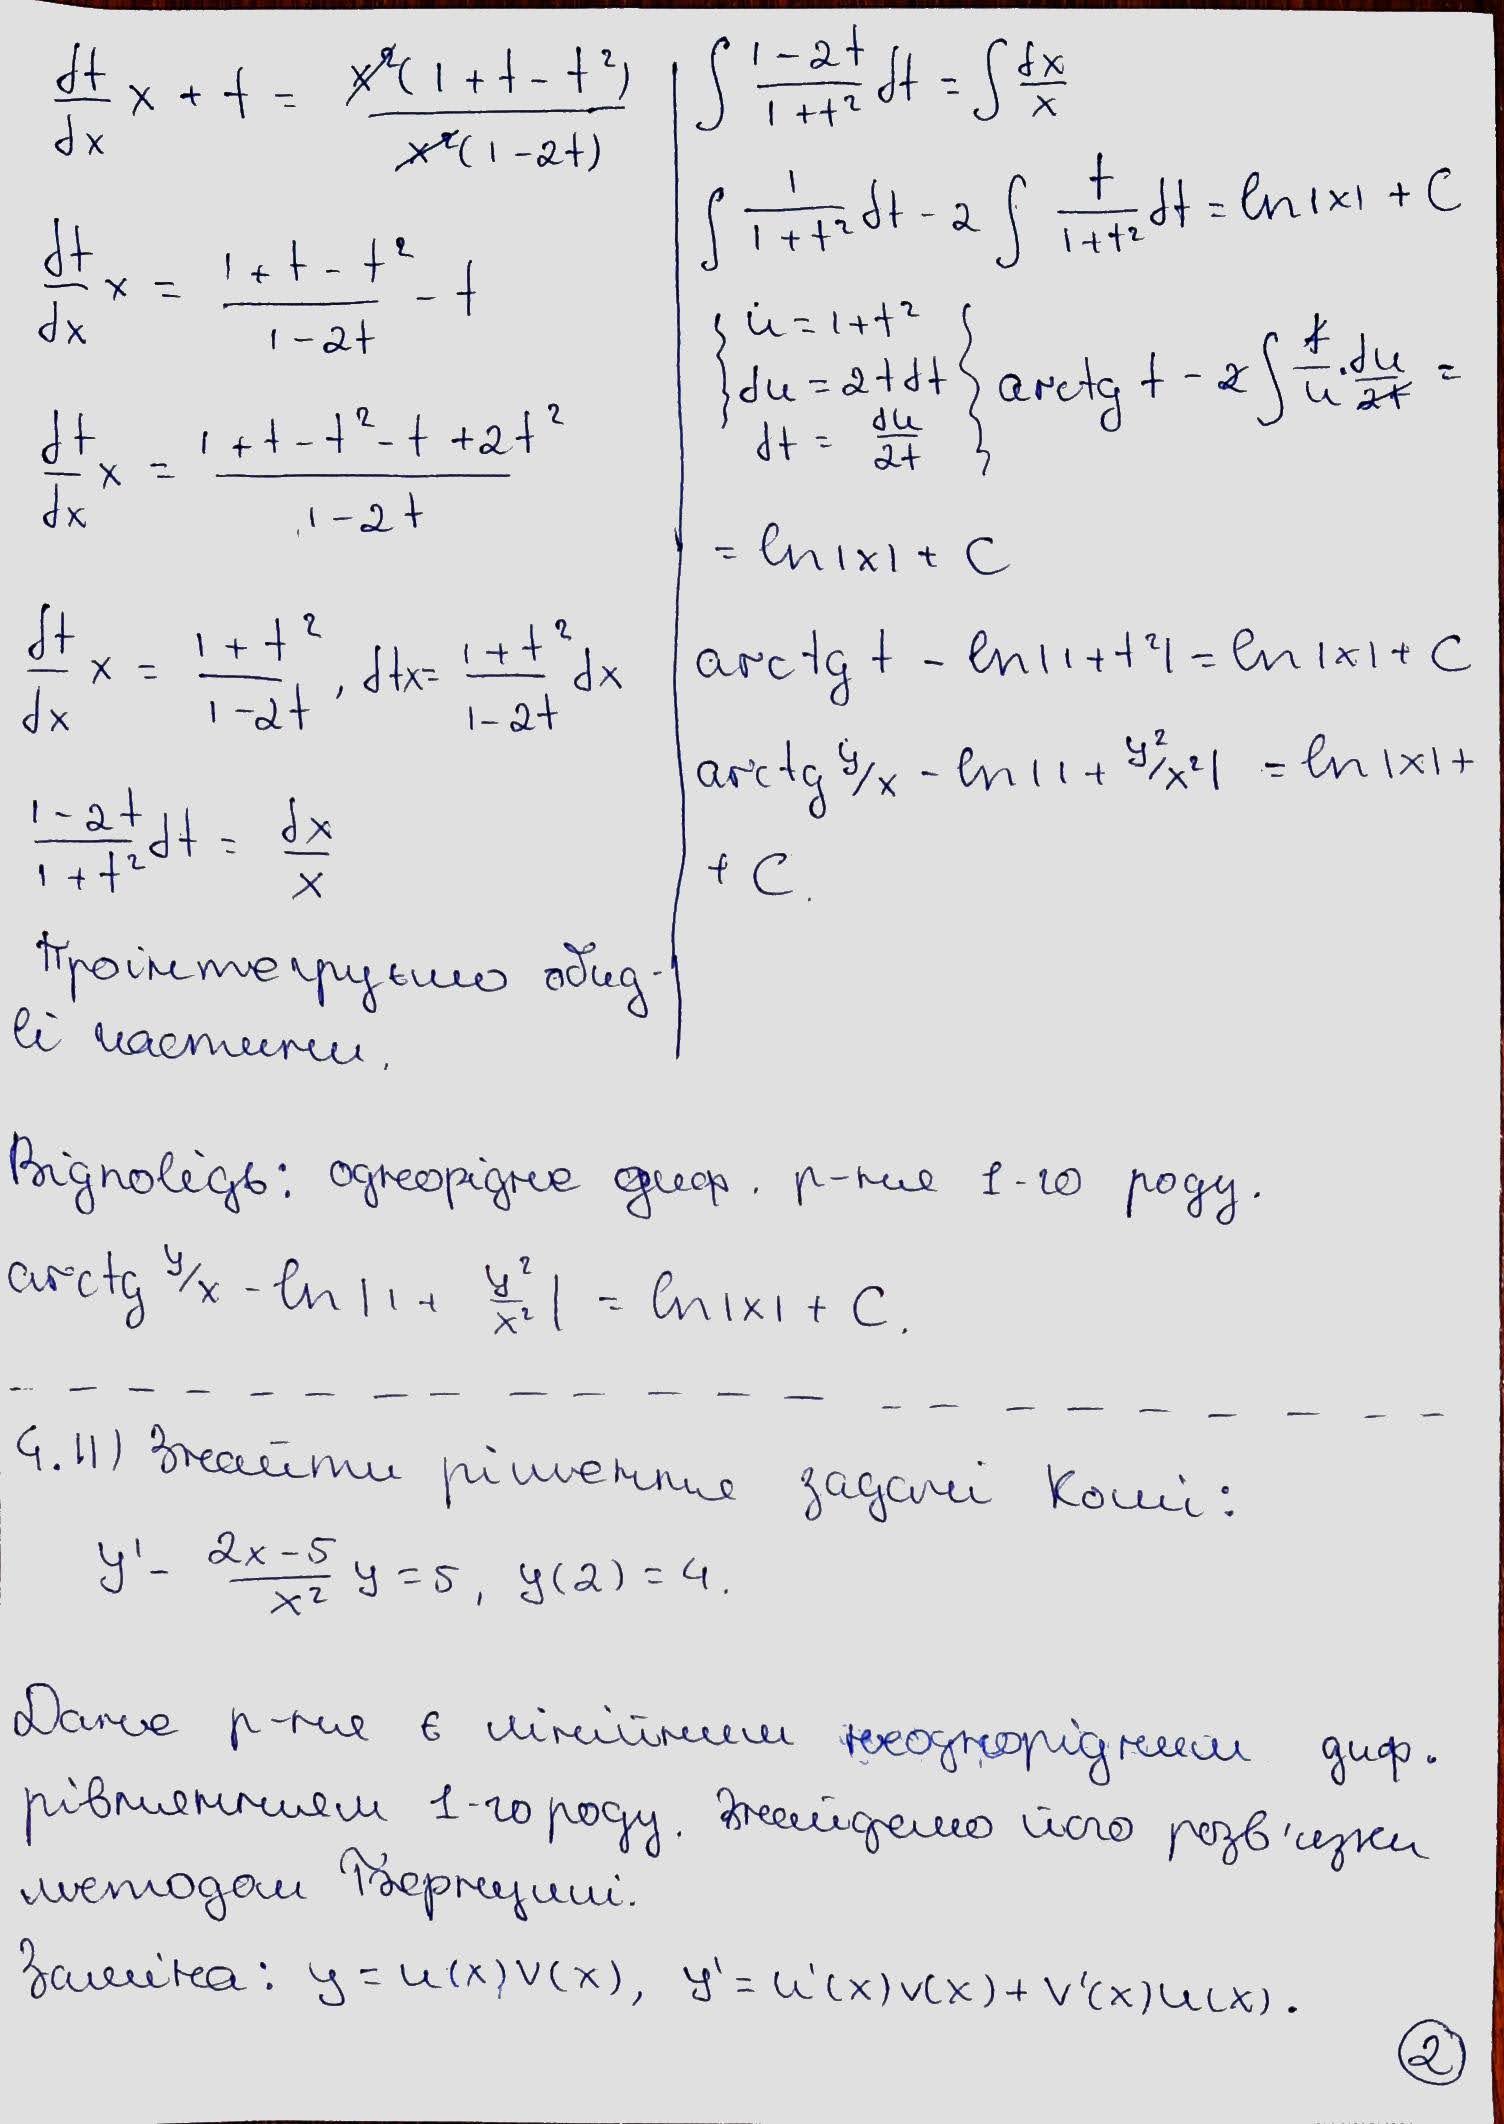 dt/dx x + t = x²(1 + t - t²) / x²(1 - 2t)
dt/dx x = (1 + t - t²)/(1 - 2t) - t
dt/dx x = (1 + t - t² - t + 2t²)/(1 - 2t)
dt/dx x = (1 + t²)/(1 - 2t), dtx = (1 + t²)/(1 - 2t) dx
(1 - 2t)/(1 + t²) dt = dx/x
Проінтегруємо обид-
ві частини.
∫ (1 - 2t)/(1 + t²) dt = ∫ dx/x
∫ 1/(1 + t²) dt - 2 ∫ t/(1 + t²) dt = ln|x| + C
{ u = 1 + t²
du = 2t dt
dt = du/2t } arctg t - 2 ∫ t/u · du/2t =
= ln|x| + C
arctg t - ln|1 + t²| = ln|x| + C
arctg y/x - ln|1 + y²/x²| = ln|x| +
+ C.
Відповідь: однорідне диф. р-ння 1-го роду.
arctg y/x - ln|1 + y²/x²| = ln|x| + C.
4.11) Знайти рішення задачі Коші:
y' - (2x - 5)/x² y = 5, y(2) = 4.
Дане р-ння є лінійним неоднорідним диф.
рівнянням 1-го роду. Знайдемо його розв'язки
методом Бернуллі.
Заміна: y = u(x)v(x), y' = u'(x)v(x) + v'(x)u(x).
2